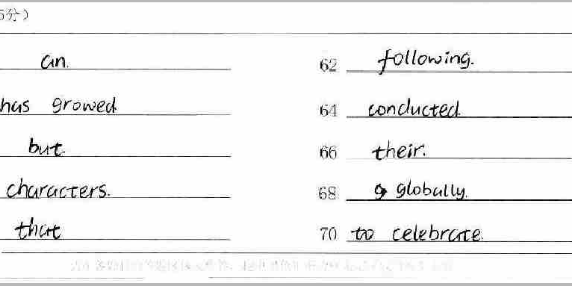 5分）
an. 62 following.
has growed 64 conducted
but 66 their.
characters. 68 globally.
that 70 to celebrate.